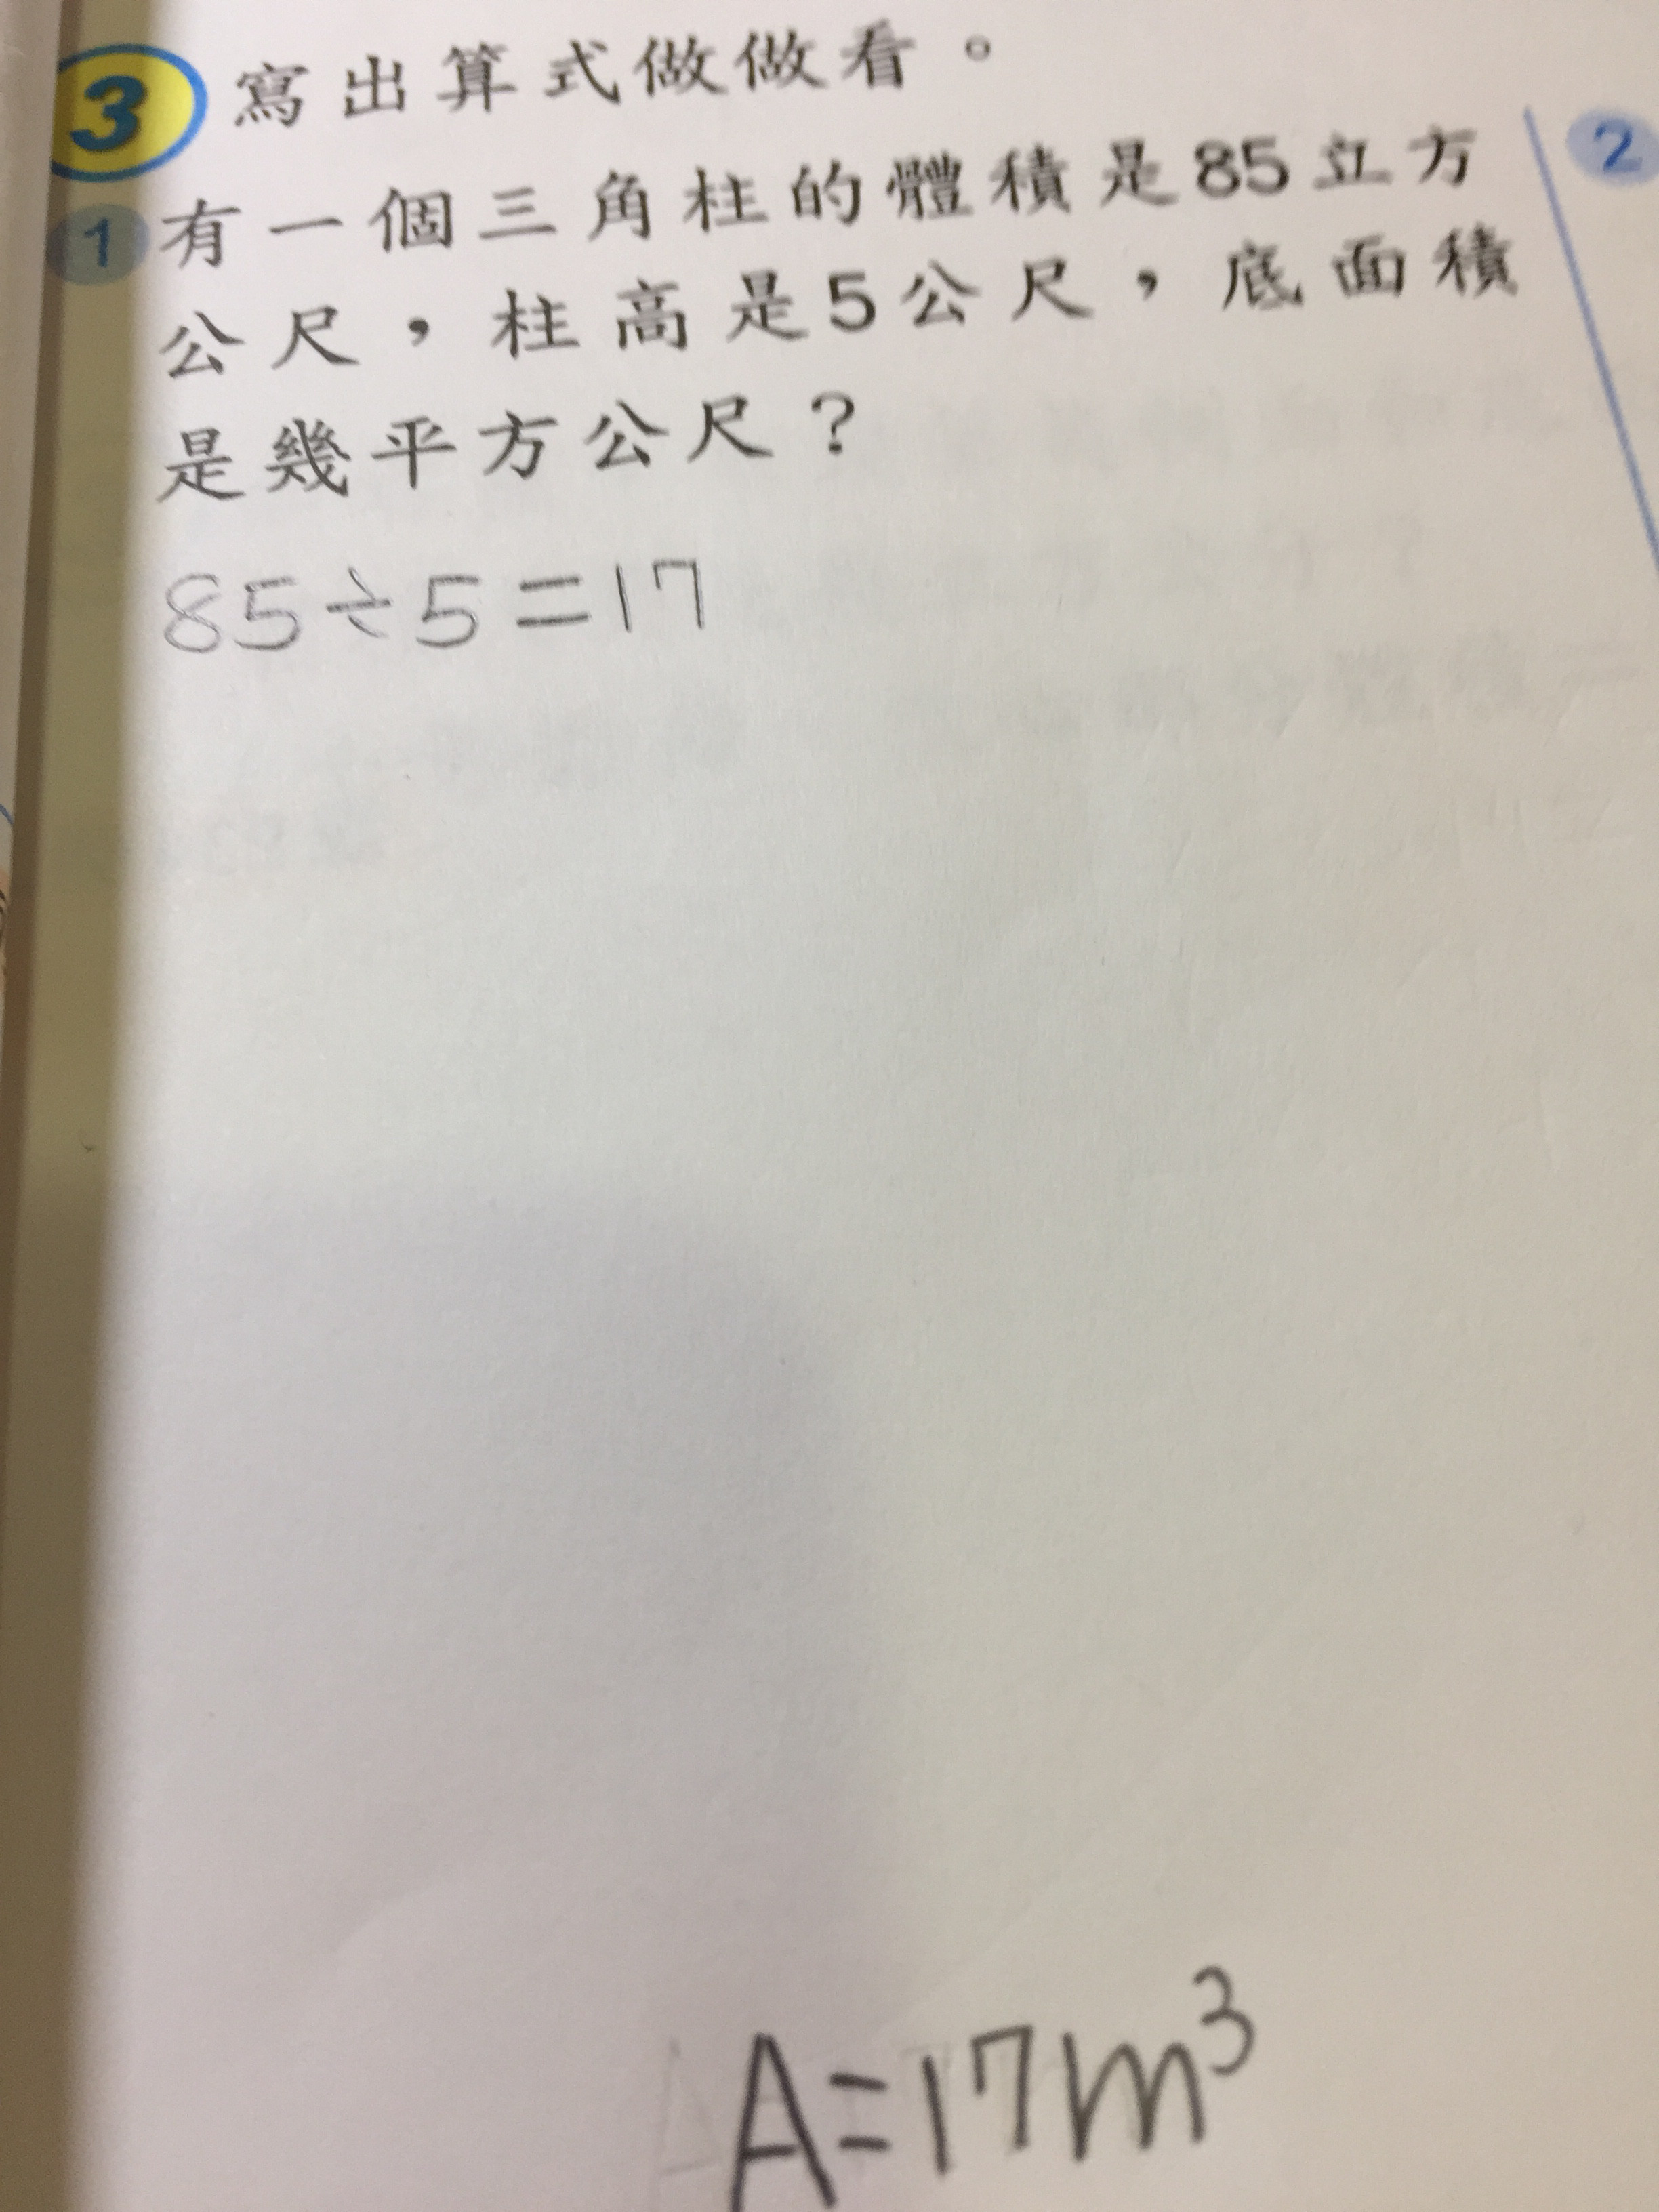 3 寫出算式做做看。
2
1 有一個三角柱的體積是85立方
公尺，柱高是5公尺，底面積
是幾平方公尺？
85÷5=17
A=17m³